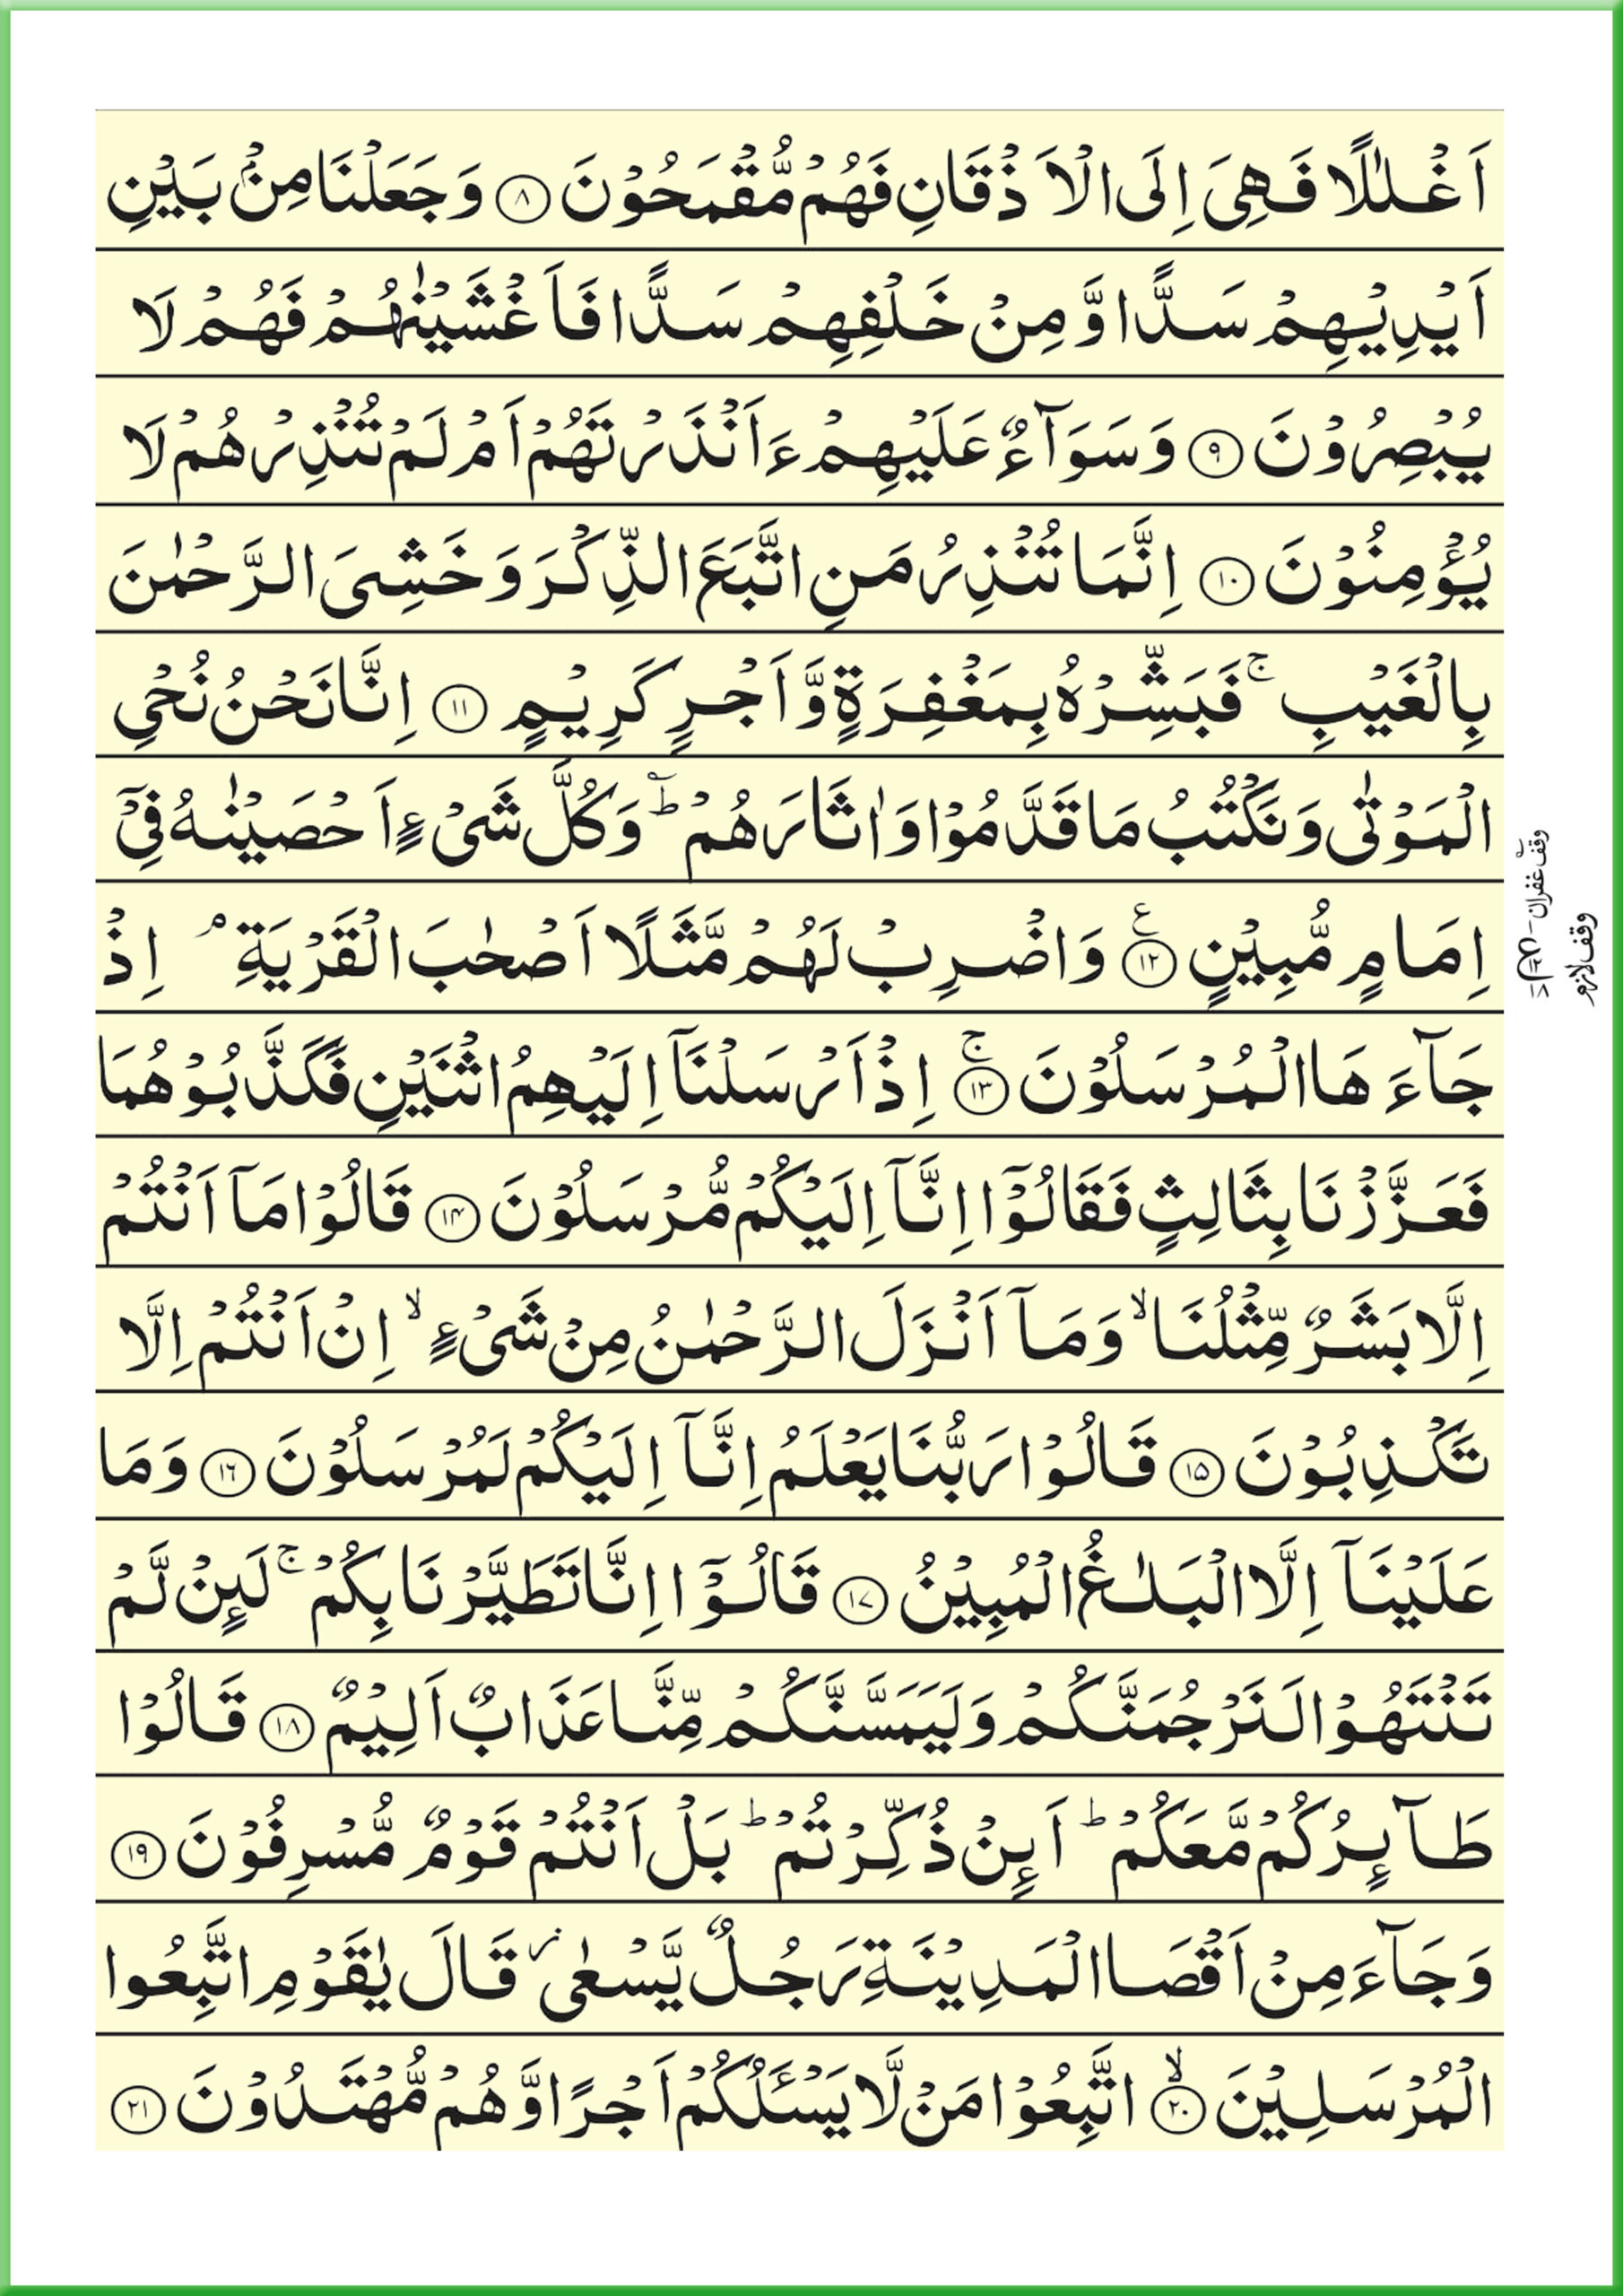 اَغْلٰلًا فَهِیَ اِلَی الْاَذْقَانِ فَهُمْ مُّقْمَحُوْنَ ﴿۸﴾ وَجَعَلْنَا مِنْۢ بَیْنِ
اَیْدِیْهِمْ سَدًّا وَّ مِنْ خَلْفِهِمْ سَدًّا فَاَغْشَیْنٰهُمْ فَهُمْ لَا
یُبْصِرُوْنَ ﴿۹﴾ وَسَوَآءٌ عَلَیْهِمْ ءَاَنْذَرْتَهُمْ اَمْ لَمْ تُنْذِرْهُمْ لَا
یُؤْمِنُوْنَ ﴿۱۰﴾ اِنَّمَا تُنْذِرُ مَنِ اتَّبَعَ الذِّكْرَ وَخَشِیَ الرَّحْمٰنَ
بِالْغَیْبِ ۚ فَبَشِّرْهُ بِمَغْفِرَةٍ وَّ اَجْرٍ كَرِیْمٍ ﴿۱۱﴾ اِنَّا نَحْنُ نُحْیِ
الْمَوْتٰی وَنَكْتُبُ مَا قَدَّمُوْا وَاٰثَارَهُمْ ؕؔ وَكُلَّ شَیْءٍ اَحْصَیْنٰهُ فِیْۤ
اِمَامٍ مُّبِیْنٍ ﴿۱۲﴾ ع وَاضْرِبْ لَهُمْ مَّثَلًا اَصْحٰبَ الْقَرْیَةِ ۘ اِذْ
جَآءَهَا الْمُرْسَلُوْنَ ﴿۱۳﴾ۚ اِذْ اَرْسَلْنَاۤ اِلَیْهِمُ اثْنَیْنِ فَكَذَّبُوْهُمَا
فَعَزَّزْنَا بِثَالِثٍ فَقَالُوْۤا اِنَّاۤ اِلَیْكُمْ مُّرْسَلُوْنَ ﴿۱۴﴾ قَالُوْا مَاۤ اَنْتُمْ
اِلَّا بَشَرٌ مِّثْلُنَا ۙ وَمَاۤ اَنْزَلَ الرَّحْمٰنُ مِنْ شَیْءٍ ۙ اِنْ اَنْتُمْ اِلَّا
تَكْذِبُوْنَ ﴿۱۵﴾ قَالُوْا رَبُّنَا یَعْلَمُ اِنَّاۤ اِلَیْكُمْ لَمُرْسَلُوْنَ ﴿۱۶﴾ وَمَا
عَلَیْنَاۤ اِلَّا الْبَلٰغُ الْمُبِیْنُ ﴿۱۷﴾ قَالُوْۤا اِنَّا تَطَیَّرْنَا بِكُمْ ۚ لَىِٕنْ لَّمْ
تَنْتَهُوْا لَنَرْجُمَنَّكُمْ وَلَیَمَسَّنَّكُمْ مِّنَّا عَذَابٌ اَلِیْمٌ ﴿۱۸﴾ قَالُوْا
طَآىِٕرُكُمْ مَّعَكُمْ ؕ اَىِٕنْ ذُكِّرْتُمْ ؕ بَلْ اَنْتُمْ قَوْمٌ مُّسْرِفُوْنَ ﴿۱۹﴾
وَجَآءَ مِنْ اَقْصَا الْمَدِیْنَةِ رَجُلٌ یَّسْعٰی ؗ قَالَ یٰقَوْمِ اتَّبِعُوا
الْمُرْسَلِیْنَ ﴿۲۰﴾ۙ اتَّبِعُوْا مَنْ لَّا یَسْـَٔلُكُمْ اَجْرًا وَّهُمْ مُّهْتَدُوْنَ ﴿۲۱﴾
وقف غفران
وقف لازم